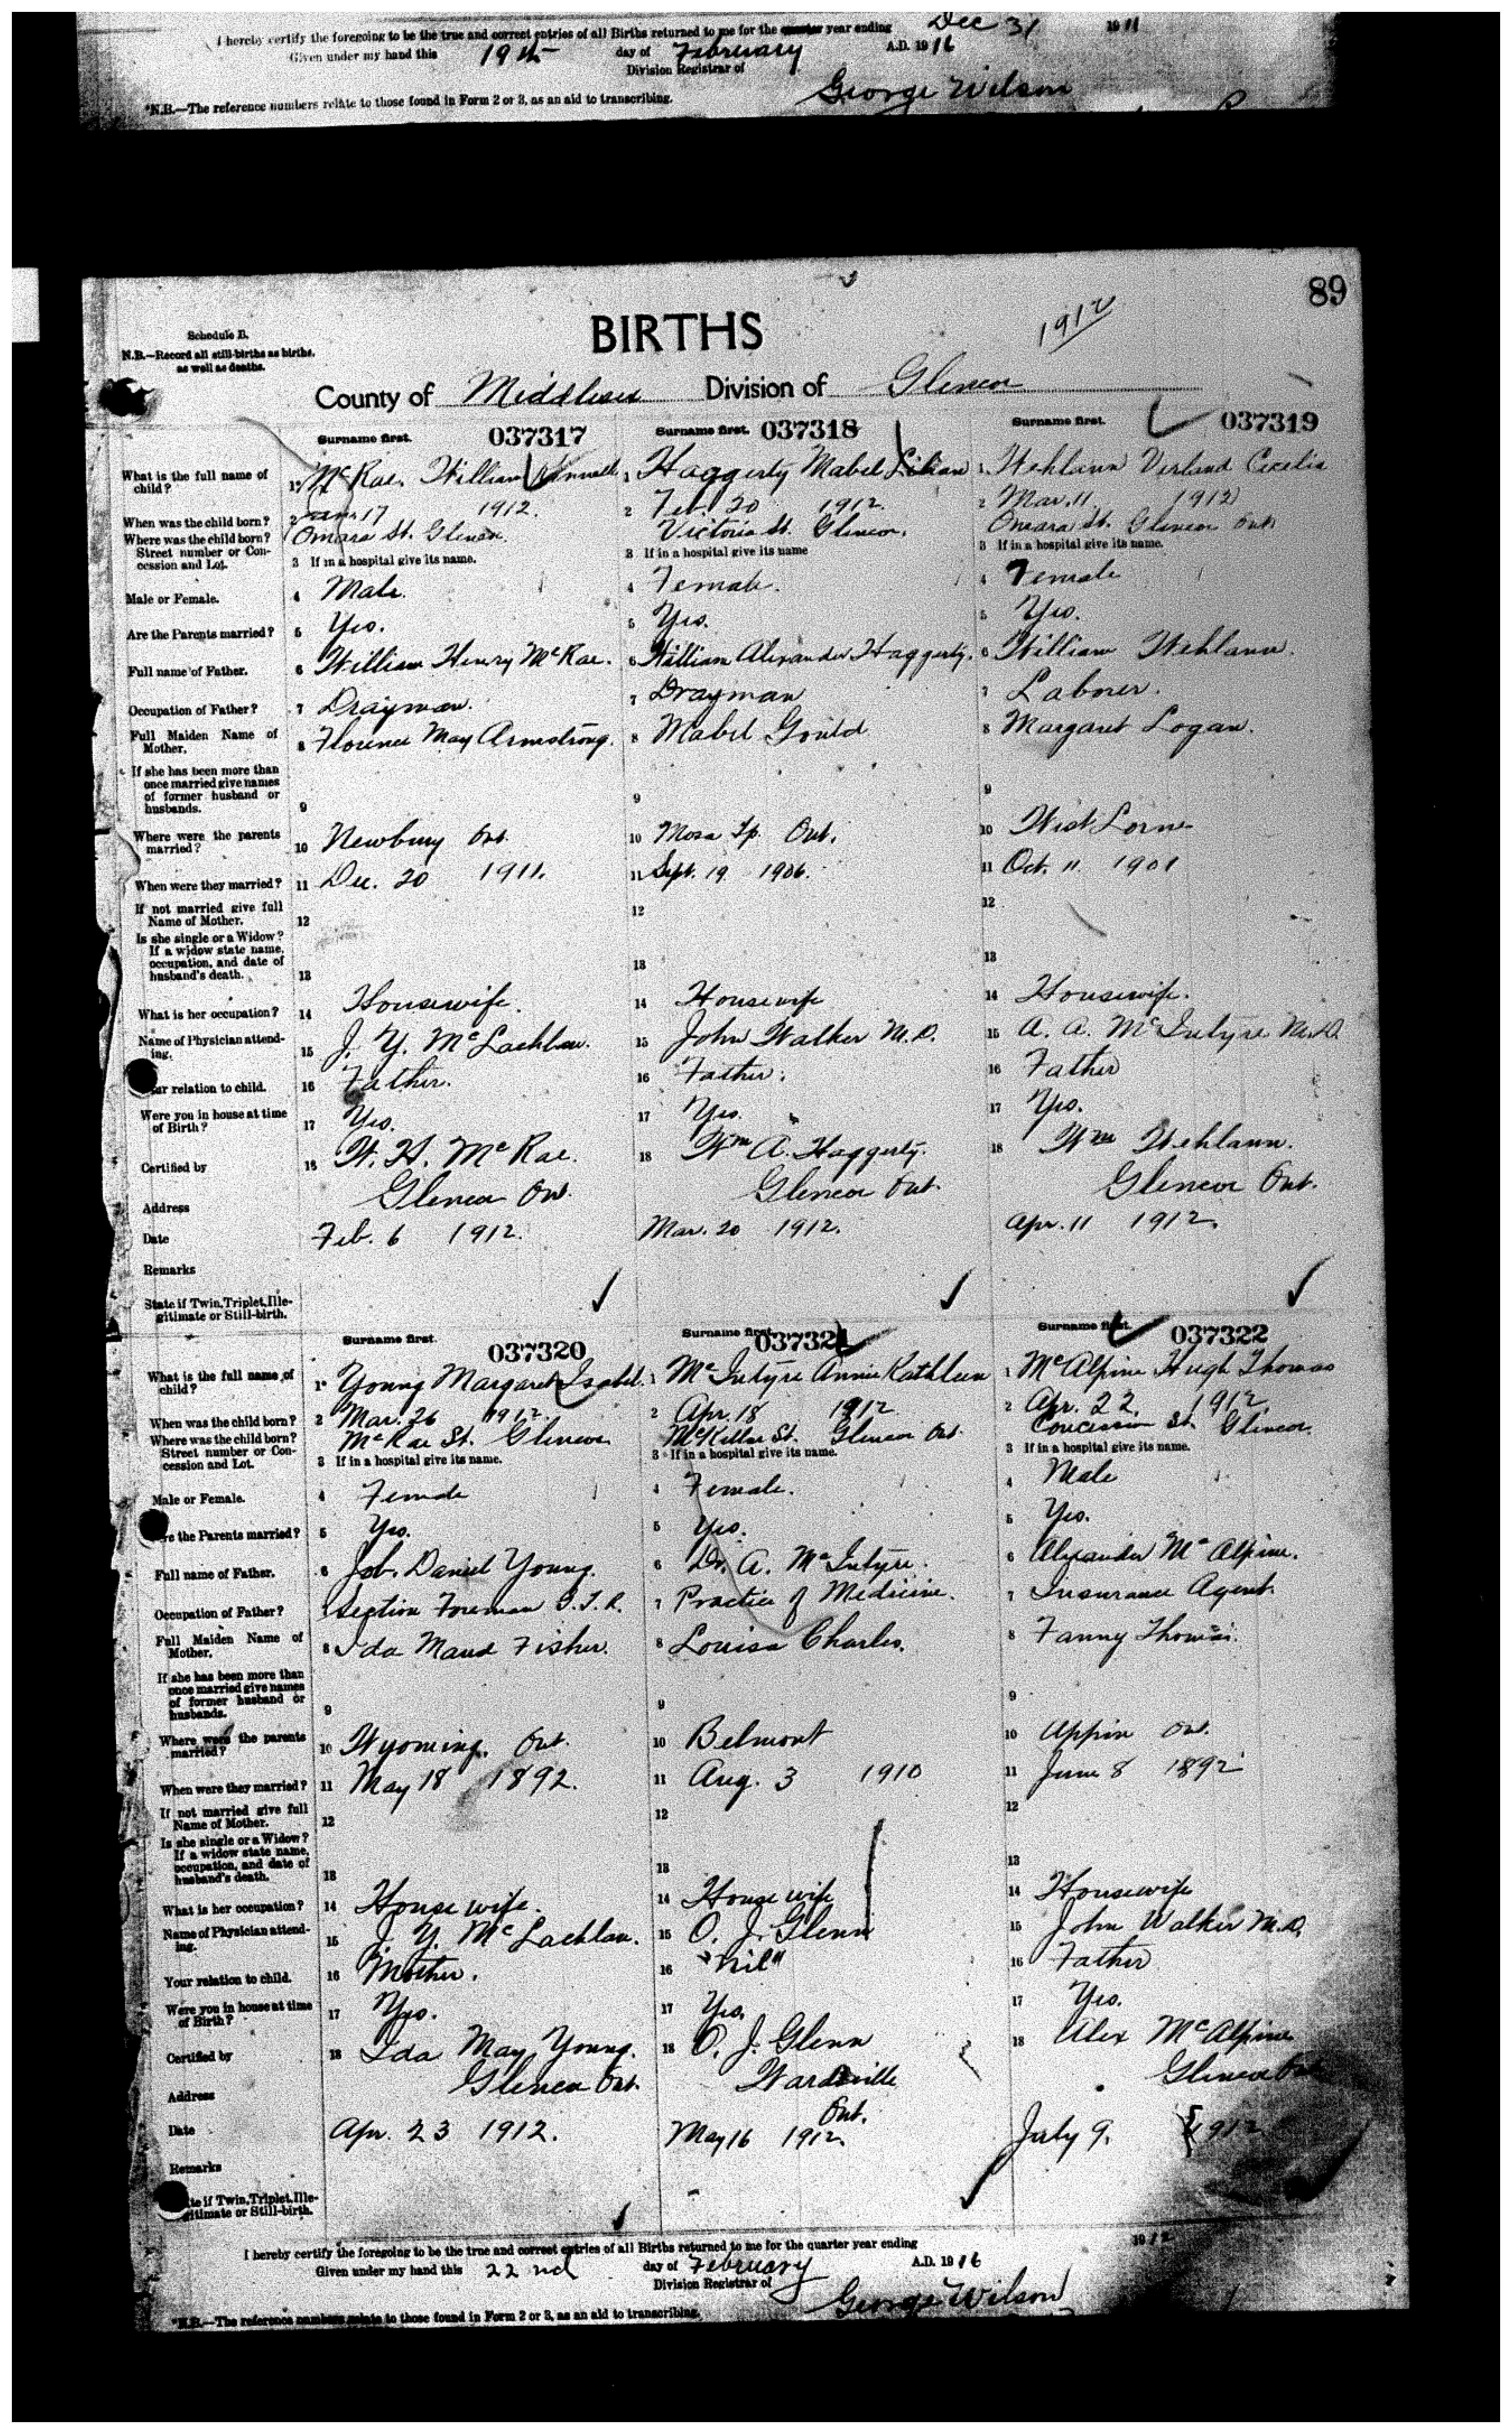 I hereby certify the foregoing to be the true and correct entries of all Births returned to me for the quarter year ending Dec 31 1911
Given under my hand this 19th day of February A.D. 1916
Division Registrar of
George Wilson
*N.B.—The reference numbers relate to those found in Form 2 or 3, as an aid to transcribing.
89
Schedule B.
N.B.—Record all still-births as births, as well as deaths.
BIRTHS
1912
County of Middlesex Division of Glencoe
Surname first. 037317 Surname first. 037318 Surname first. 037319
What is the full name of child? 1 McRae, William 1 Haggerty Mabel Lilian 1 Wehlann Verland Cecelia
When was the child born? 2 Jan. 17 1912. 2 Feb. 20 1912. 2 Mar. 11 1912
Where was the child born? Street number or Concession and Lot. Omara St. Glencoe. Victoria St. Glencoe. Omara St. Glencoe Ont.
3 If in a hospital give its name. 3 If in a hospital give its name 3 If in a hospital give its name.
Male or Female. 4 Male. 4 Female. 4 Female
Are the Parents married? 5 Yes. 5 Yes. 5 Yes.
Full name of Father. 6 William Henry McRae. 6 William Alexander Haggerty. 6 William Wehlann.
Occupation of Father? 7 Drayman. 7 Drayman 7 Laborer.
Full Maiden Name of Mother. 8 Florence May Armstrong. 8 Mabel Gould 8 Margaret Logan.
If she has been more than once married give names of former husband or husbands. 9 9 9
Where were the parents married? 10 Newbury Ont. 10 Mosa Tp. Ont. 10 West Lorne
When were they married? 11 Dec. 20 1911. 11 Sept. 19 1906. 11 Oct. 11 1901
If not married give full Name of Mother. 12 12 12
Is she single or a Widow? If a widow state name, occupation, and date of husband's death. 13 13 13
What is her occupation? 14 Housewife. 14 Housewife 14 Housewife.
Name of Physician attending. 15 J. Y. McLachlan. 15 John Walker M.D. 15 A. A. McIntyre M.D.
ur relation to child. 16 Father. 16 Father. 16 Father
Were you in house at time of Birth? 17 Yes. 17 Yes. 17 Yes.
Certified by 18 W. H. McRae. 18 Wm A. Haggerty. 18 Wm Wehlann.
Address Glencoe Ont. Glencoe Ont. Glencoe Ont.
Date Feb. 6 1912. Mar. 20 1912. Apr. 11 1912.
Remarks
State if Twin, Triplet, Illegitimate or Still-birth.
Surname first. 037320 Surname first. 037321 Surname first. 037322
What is the full name of child? 1 Young Margaret Isabel. 1 McIntyre Annie Kathleen 1 McAlpine Hugh Thomas
When was the child born? 2 Mar. 26 1912. 2 Apr. 18 1912 2 Apr. 22. 1912.
Where was the child born? Street number or Concession and Lot. McRae St. Glencoe McKellar St. Glencoe Ont. Concession St. Glencoe.
3 If in a hospital give its name. 3 If in a hospital give its name. 3 If in a hospital give its name.
Male or Female. 4 Female 4 Female. 4 Male
re the Parents married? 5 Yes. 5 Yes. 5 Yes.
Full name of Father. 6 Job. Daniel Young. 6 Dr. A. McIntyre. 6 Alexander McAlpine.
Occupation of Father? 7 Section Foreman G.T.R. 7 Practice of Medicine. 7 Insurance Agent.
Full Maiden Name of Mother. 8 Ida Maud Fisher. 8 Louisa Charles. 8 Fanny Thomas.
If she has been more than once married give names of former husband or husbands. 9 9 9
Where were the parents married? 10 Wyoming. Ont. 10 Belmont 10 Appin Ont.
When were they married? 11 May 18 1892. 11 Aug. 3 1910 11 June 8 1892
If not married give full Name of Mother. 12 12 12
Is she single or a Widow? If a widow state name, occupation, and date of husband's death. 13 13 13
What is her occupation? 14 Housewife. 14 Housewife 14 Housewife
Name of Physician attending. 15 J. Y. McLachlan. 15 O. J. Glenn 15 John Walker M.D.
Your relation to child. 16 Mother. 16 "Nil" 16 Father
Were you in house at time of Birth? 17 Yes. 17 Yes. 17 Yes.
Certified by 18 Ida May Young. 18 O. J. Glenn 18 Alex McAlpine
Address Glencoe Ont. Wardsville Ont. Glencoe Ont.
Date Apr. 23 1912. May 16 1912. July 9. 1912
Remarks
te if Twin, Triplet, Illegitimate or Still-birth.
I hereby certify the foregoing to be the true and correct entries of all Births returned to me for the quarter year ending 1912
Given under my hand this 22nd day of February A.D. 1916
Division Registrar of
George Wilson
*N.B.—The reference numbers relate to those found in Form 2 or 3, as an aid to transcribing.